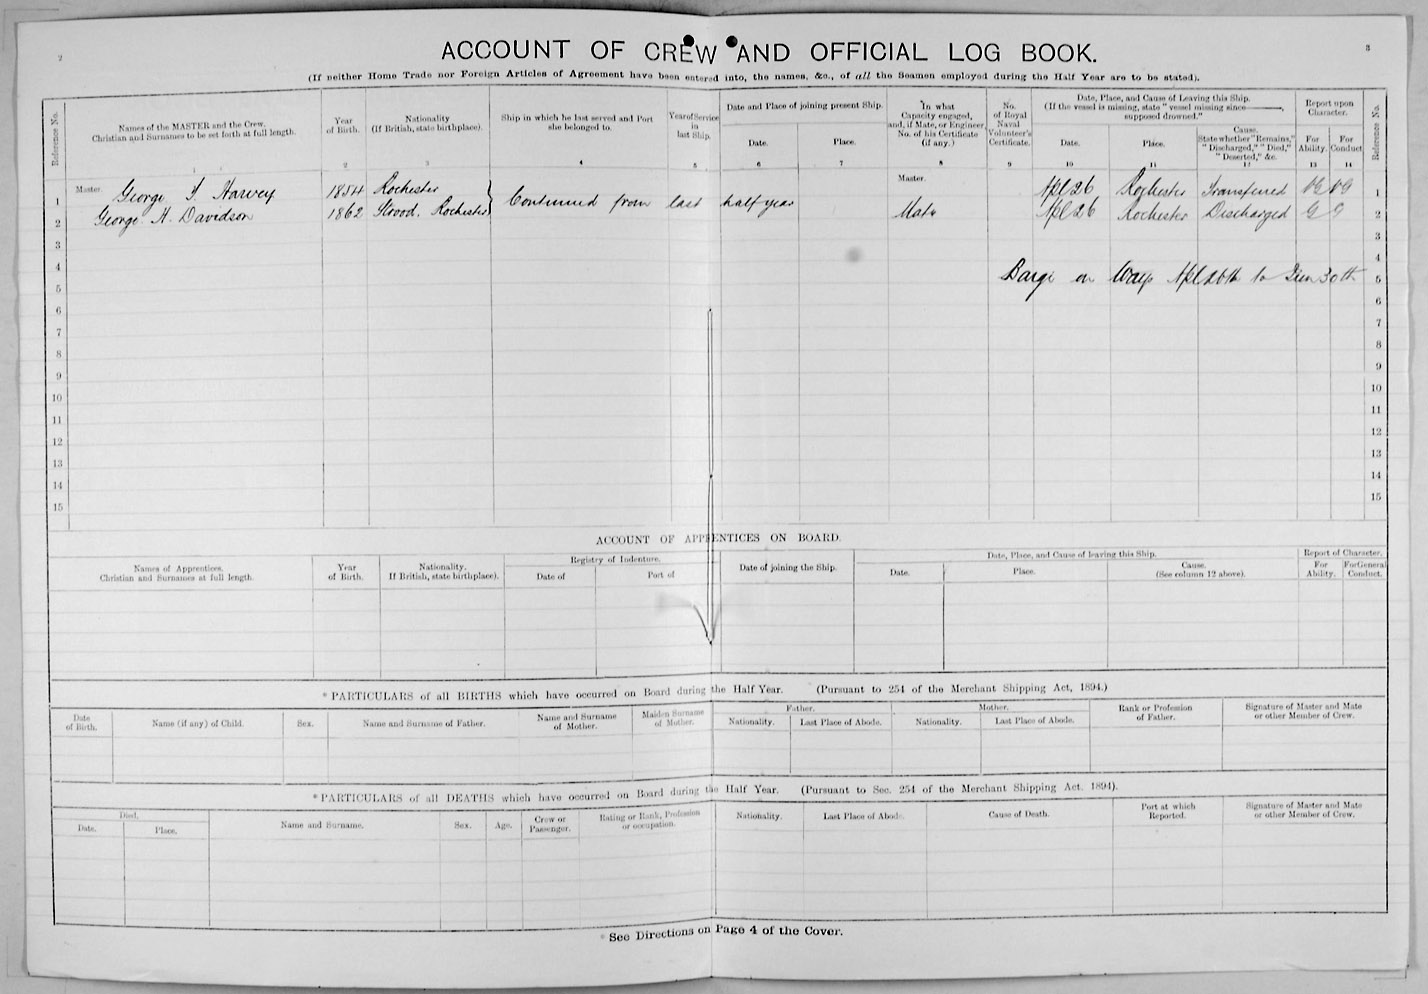 2
3
ACCOUNT OF CREW AND OFFICIAL LOG BOOK.
(If neither Home Trade nor Foreign Articles of Agreement have been entered into, the names, &c., of all the Seamen employed during the Half Year are to be stated).
Reference No.
Names of the MASTER and the Crew.
Christian and Surnames to be set forth at full length.
1
Year
of Birth.
2
Nationality
(If British, state birthplace).
3
Ship in which he last served and Port
she belonged to.
4
Year of Service
in
last Ship.
5
Date and Place of joining present Ship.
Date.
6
Place.
7
In what
Capacity engaged,
and, if Mate, or Engineer
No. of his Certificate
(if any.)
8
No.
of Royal
Naval
Volunteer's
Certificate.
9
Date, Place, and Cause of Leaving this Ship.
(If the vessel is missing, state "vessel missing since ———,
supposed drowned."
Date.
10
Place.
11
Cause.
State whether "Remains,"
"Discharged," "Died,"
"Deserted," &c.
12
Report upon
Character.
For
Ability.
13
For
Conduct
14
Reference No.
1 Master. George T. Harvey 1854 Rochester Continued from last half year Master. Apl 26 Rochester Transferred VG VG 1
2 George H. Davidson 1862 Strood, Rochester Mate Apl 26 Rochester Discharged G G 2
3 3
4 4
5 Barge on Ways Apl 26th to Jun 30th 5
6 6
7 7
8 8
9 9
10 10
11 11
12 12
13 13
14 14
15 15
ACCOUNT OF APPRENTICES ON BOARD.
Names of Apprentices.
Christian and Surnames at full length.
Year
of Birth.
Nationality.
If British, state birthplace).
Registry of Indenture.
Date of
Port of
Date of joining the Ship.
Date, Place, and Cause of leaving this Ship.
Date.
Place.
Cause.
(See column 12 above).
Report of Character.
For
Ability.
For General
Conduct.
* PARTICULARS of all BIRTHS which have occurred on Board during the Half Year. (Pursuant to 254 of the Merchant Shipping Act, 1894.)
Date
of Birth.
Name (if any) of Child.
Sex.
Name and Surname of Father.
Name and Surname
of Mother.
Maiden Surname
of Mother.
Father.
Nationality.
Last Place of Abode.
Mother.
Nationality.
Last Place of Abode.
Rank or Profession
of Father.
Signature of Master and Mate
or other Member of Crew.
* PARTICULARS of all DEATHS which have occurred on Board during the Half Year. (Pursuant to Sec. 254 of the Merchant Shipping Act. 1894).
Died.
Date.
Place.
Name and Surname.
Sex.
Age.
Crew or
Passenger.
Rating or Rank, Profession
or occupation.
Nationality.
Last Place of Abode.
Cause of Death.
Port at which
Reported.
Signature of Master and Mate
or other Member of Crew.
* See Directions on Page 4 of the Cover.